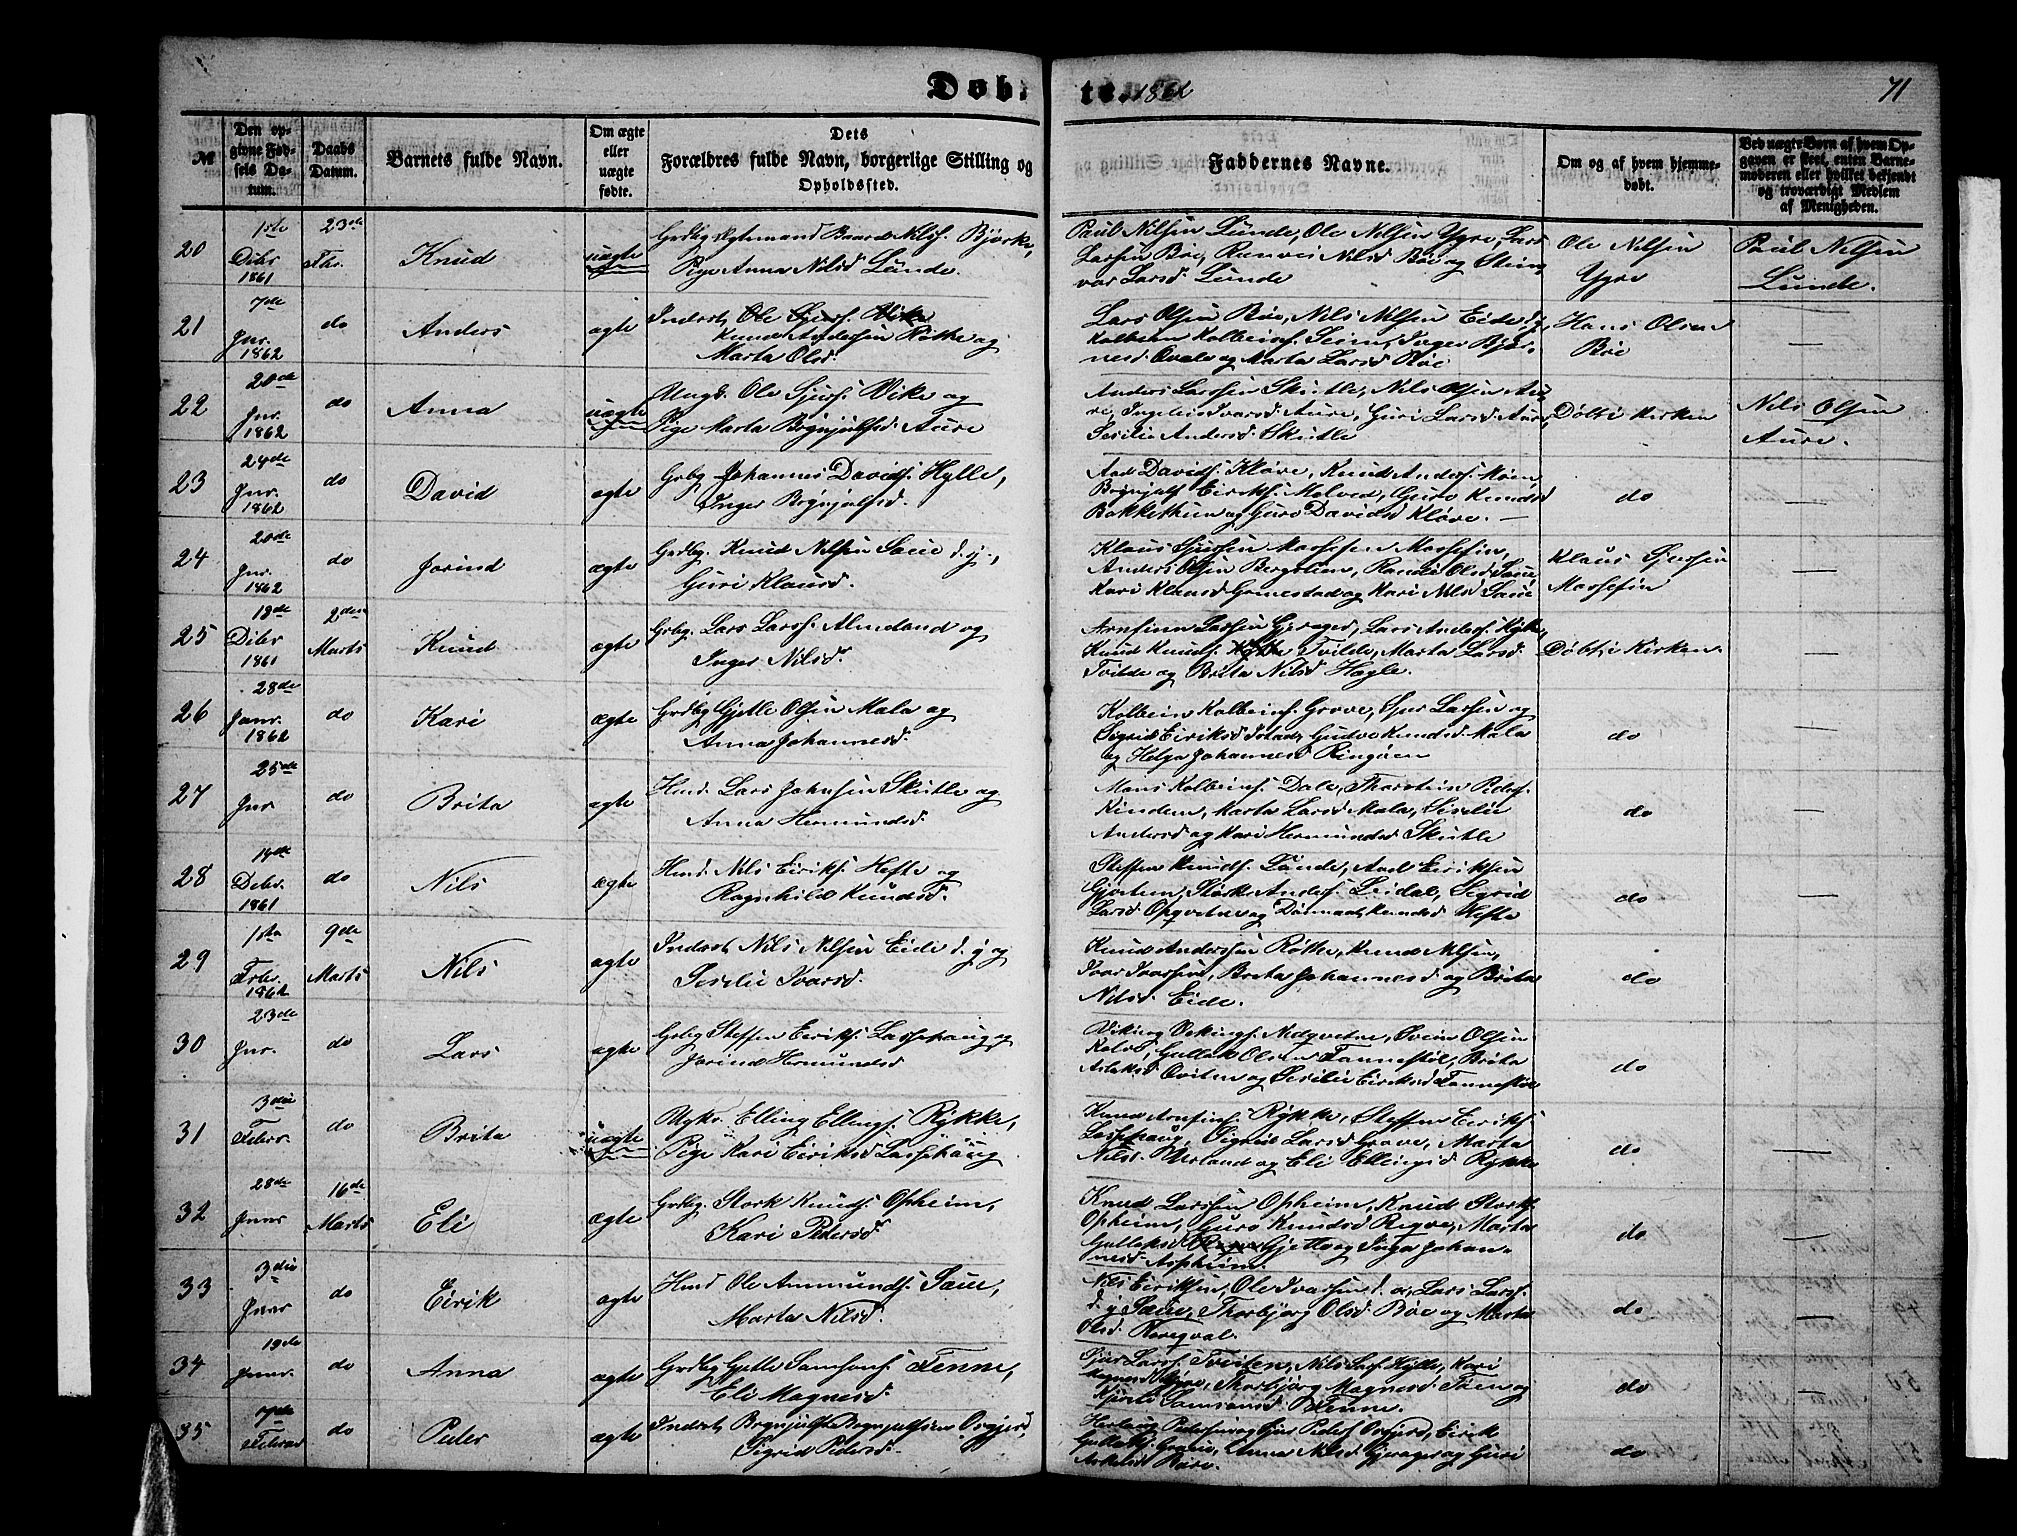 Døbte. 1862
71
№
Den opgivne Fødsels Datum.
Daabs Datum.
Barnets fulde Navn.
Om ægte eller uægte fødte.
Dets Forældres fulde Navn, borgerlige Stilling og Opholdssted.
Faddernes Navne.
Om og af hvem hjemmedøbt.
Ved uægte Børn af hvem Opgaven er skeet, enten Barnemoderen eller hvilket bekjendt og troværdigt Medlem af Menigheden.
20
1ste Debr 1861
23de Fbr.
Knud
uægte
Pige Anna Nilsd Lunde.
Paul Nilsen Lunde, Ole Nilsen Ygre, Lars
Larsen Bøe, Ranvei Nilsd Bøe og Stein-
vor Larsd. Lunde
Ole Nilsen
Ygre
Paul Nilsen
Lunde.
21
7de Jnr. 1862
do
Anders
ægte
Inderst, Ole Sjurs. Vike
Knud Andersen Røthe og
Marta Olsd.
Lars Olsen Bøe, Nils Nilsen Eide og
Kolbein Kolbeins. Seim, Inger Bjør-
Hans Olsen
Bøe
22
20de Jnr. 1862
do
Anna
uægte
Ungk. Ole Sjurs. Vike og
Pige Marta Brynjulfsd Aure
Anders Larssen Skutle, Nils Olsen Au-
re, Ingeleiv Ivarsd. Aure, Guri Larsd. Aure,
Sesilie Andersd. Skutle
Døbt i Kirken
Nils Olsen
Aure.
23
24de Jnr. 1862
do
David
ægte
Grbg. Johannes Davids. Hylle,
Inger Brynjulfsd.
Aad Davids. Kløve, Knud Anders. Møen
Brynjulf Eiriks. Melved, Guro Knudsd
Bakkethun og Guro Davidsd Kløve. —
do
—
24
20de Jnr. 1862
do
Jorind
ægte
Grdbg. Knud Nilsen Saue d. y.,
Guri Klausd.
Klaus Sjursen
Anders Olsen Bergslien, Randi Olsd. Saue
Kari Klausd Grimestad og Kari Nilsd Saue
Klaus Sjursen
—
25
18de Debr 1861
2den Marts
Knud
ægte
Grbg. Lars Larss. Almeland og
Inger Nilsd.
Arnfinn Larssen Gjerager, Lars Anders.
Knud Knuds. Tvilde, Marta Larsd.
Tvilde og Brita Nilsd Hægle.
Døbt i Kirken.
—
26
28de Janr. 1862
do
Kari
ægte
Grdbg Gjetle Olsen Mala og
Anna Johannesd.
Kolbein Kolbeins. Grove, Sjur Larsen og
Sigrid Eiriksd Istad, Gudve Knudsd Mala
og Helga Johannesd Ringøen
do
—
27
25de Jnr
do
Brita
ægte
Husd. Lars Johnsen Skutle og
Anna Hermundsd.
Mons Kolbeins. Dale, Thorstein Peders.
Rinden, Marta Larsd Mala, Sesilie
Andersd og Kari Hermundsd Skutle
do
—
28
14de Debr. 1861
do
Nils
ægte
Husd. Nils Eiriks. Hefte og
Ragnhild Knudsd.
Steffen Knuds. Lunde, Aad Eiriksen
Gjøstein, Størk Anders. Leidal, Sigrid
Larsd. Opqvitne og Knudsd Hefte
do
29
1ste Febr. 1862
9de Marts
Nils
ægte
Inderst, Nils Nilsen Eide d. y. og
Sesilie Ivarsd.
Knud Anderssen Røthe, Knud Nilsen,
Ivar Ivarsen, Brita Johannesd og Brita
Nilsd. Eide.
do
30
23de Jnr.
do
Lars
ægte
Grbg Steffen Eiriks. Lassehaug og
Jorind Hermundsd
Viking Vikings. Nedqvitne, Sven Olsen
Kolve, Gullek Olsen Fannestøl, Brita
Aslaksd Qviten og Sesilie Eiriksd Fannestøl
do
31
3die Febr.
do
Brita
uægte
Ungkr. Elling Ellings. Rykke,
Pige Kari Eiriksd Lassehaug
Knud Arnfins. Rykke, Steffen Eiriks.
Lassehaug, Sigrid Larsd Grove, Marta
Nilsd. Urland og Eli Ellingsd Rykke
do
—
32
28de Janr
16de Marts
Eli
ægte
Grdbg. Størk Knuds. Opheim,
Kari Pedersd
Knud Larssen Opheim, Knud Størks.
Opheim, Guro Knudsd Rogve, Marta
Gulleksd Gjetle og Inga Johan-
nesd. Opheim.
do
—
33
3die Janr
do
Eirik
ægte
Husd Ole Ammunds. Saue,
Marta Nilsd.
Nils Eiriksen, Ole Ivarsen d. æ., Lars Larss.
d. y. Saue, Thorbjørg Olsd. Bøe og Marta
Olsd.
do
34
19de Janr.
do
Anna
ægte
Grdbg Gjetle Samsons. Tenne,
Eli Magnesd.
Sjur Larss. Tveiten, Nils Hylle, Kari
Thorbjørg Magnesd. og
Samsonsd. Tenne.
do
—
35
7de Februar
do
Peder
ægte
Inderst, Brynjulf Brynjulfsen
Sigrid Pedersd.
Peders. Eirik
Anna Nilsd Gjerager og Guri
do